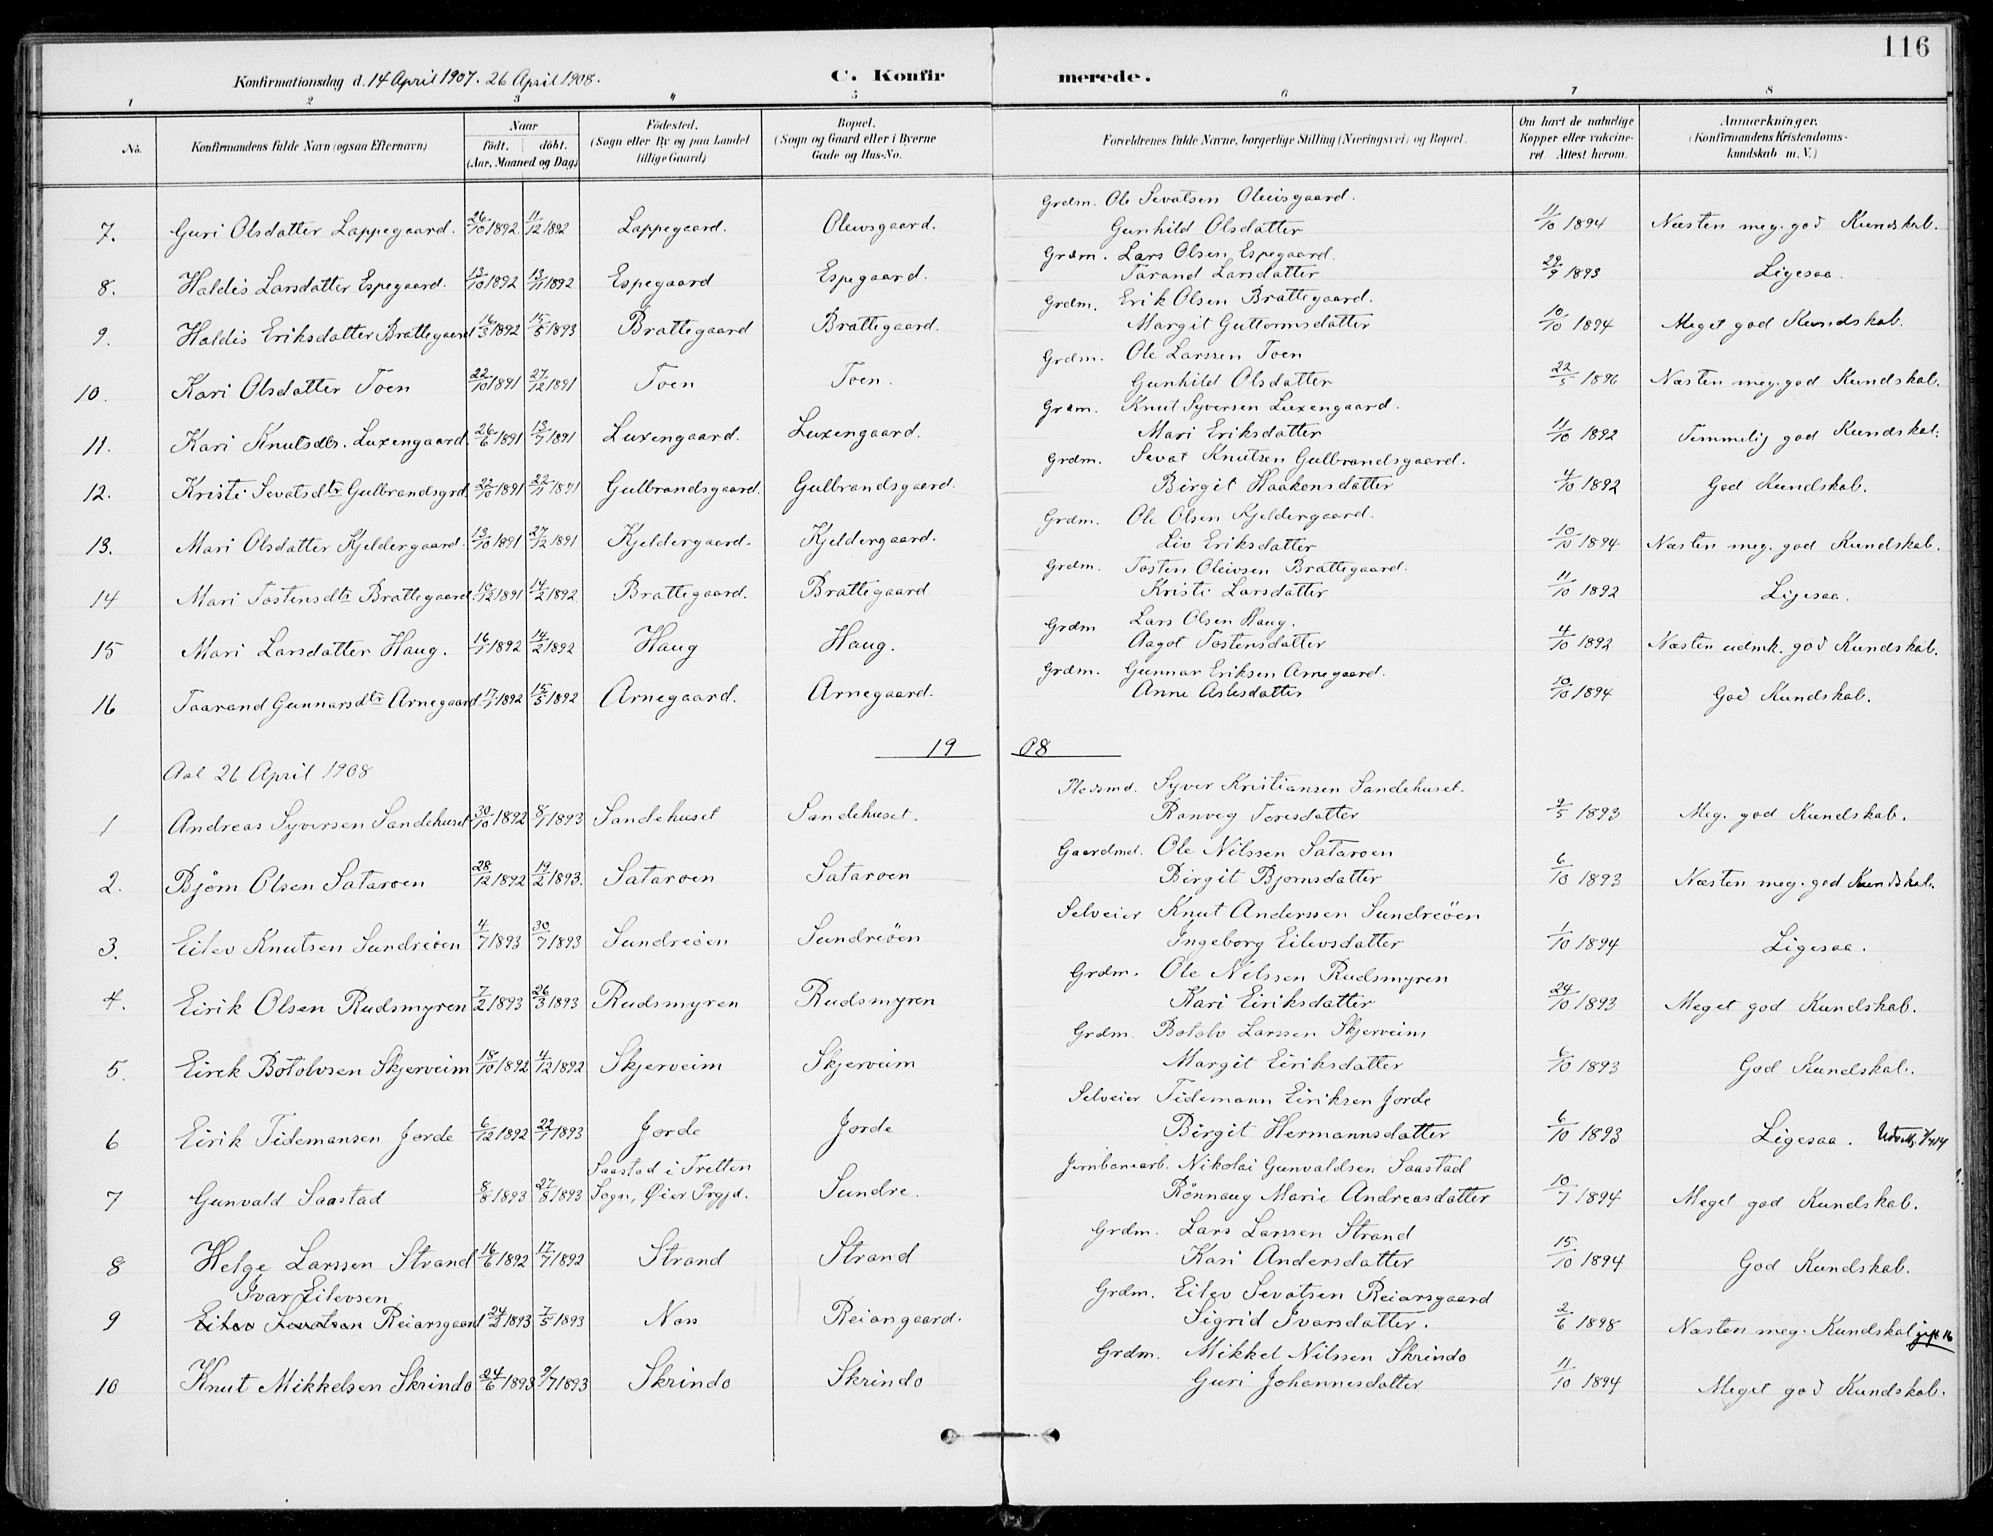 116
Konfirmationsdag d. 14 April 1907. 26 April 1908. C. Konfirmerede.
1 2 3 4 5 6 7 8
No. Konfirmandens fulde Navn (ogsaa Efternavn) Naar født. døbt. (Aar, Maaned og Dag) Fødested. (Sogn eller By og paa Landet tillige Gaard) Bopæl. (Sogn og Gaard eller i Byerne Gade og Hus-No. Forældrenes fulde Navne, borgerlige Stilling (Næringsvei) og Bopæl. Om havt de naturlige Kopper eller vaccineret. Attest herom. Anmærkninger. (Konfirmandens Kristendomskundskab m. V.)
Grdm. Ole Sevatsen Oleivsgaard.
7. Guri Olsdatter Lappegaard. 26/10 1892 11/12 1892 Lappegaard. Oleivsgaard. Gunhild Olsdatter 11/10 1894 Næsten meg. god Kundskab.
Grdm. Lars Olsen Espegaard.
8. Haldis Larsdatter Espegaard. 13/10 1892 13/11 1892 Espegaard Espegaard. Tarand Larsdatter 29/9 1893 Ligesaa.
Grdm. Erik Olsen Brattegaard.
9. Haldis Eriksdatter Brattegaard 16/3 1892 15/5 1893 Brattegaard Brattegaard. Margit Guttormsdatter 10/10 1894 Meget god Kundskab.
Grdm. Ole Larssen Toen
10. Kari Olsdatter Toen 22/10 1891 27/12 1891 Toen Toen. Gunhild Olsdatter 22/5 1896 Næsten meg. god Kundskab.
Grdm. Knut Syversen Luxengaard.
11. Kari Knutsdtr. Luxengaard. 26/6 1891 13/7 1891 Luxengaard. Luxengaard. Mari Eriksdatter 11/10 1892 Temmelig god Kundskab.
Grdm. Sevat Knutsen Gulbrandsgaard.
12. Kristi Sevatsdtr Gulbrandsgrd. 22/10 1891 22/11 1891 Gulbrandsgaard. Gulbrandsgaard. Birgit Haakensdatter 4/10 1892 God Kundskab.
Grdm. Ole Olsen Kjeldergaard.
13. Mari Olsdatter Kjeldergaard. 13/10 1891 27/12 1891 Kjeldergaard. Kjeldergaard. Liv Eriksdatter 10/10 1894 Næsten meg. god Kundskab.
Grdm. Tosten Oleivsen Brattegaard.
14 Mari Tostensdtr Brattegaard 10/12 1891 14/2 1892 Brattegaard. Brattegaard Kristi Larsdatter 11/10 1892 Ligesaa.
Grdm Lars Olsen Haug.
15 Mari Larsdatter Haug. 16/1 1892 14/2 1892 Haug Haug. Aagot Tostensdatter 4/10 1892 Næsten udmk. god Kundskab.
Grdm. Gunnar Eriksen Arnegaard.
16 Taarand Gunnarsdtr Arnegaard. 17/1 1892 15/5 1892 Arnegaard. Arnegaard. Anne Aslesdatter 10/10 1894 God Kundskab.
1908
Aal 26 April 1908
Pladsmd. Syver Kristiansen Sandehuset.
1 Andreas Syversen Sandehuset 30/10 1892 8/1 1893 Sandehuset Sandehuset. Ranveg Toresdatter 2/5 1893 Meg. god Kundskab.
Gaardmd. Ole Nilssen Sataroen
2. Bjørn Olsen Sataroen 28/12 1892 19/2 1893. Sataroen Sataroen Birgit Bjørnsdatter 6/10 1893 Næsten meg. god Kundskab.
Selveier Knut Anderssen Sundreöen
3. Eilev Knutsen Sundreöen 4/7 1893 30/7 1893 Sundreöen Sundreöen Ingeborg Eilevsdatter 1/10 1894 Ligesaa.
Grdm. Ole Nilssen Rudsmyren
4. Eirik Olsen Rudsmyren 7/2 1893 26/3 1893 Rudsmyren Rudsmyren Kari Eiriksdatter 24/10 1893 Meget god Kundskab.
Grdm. Botolv Larssen Skjerveim
5. Eirek Botolvsen Skjerveim 18/10 1892 4/12 1892 Skjerveim Skjerveim Margit Eiriksdatter 6/10 1893 God Kundskab.
Selveier Tidemann Eiriksen Jorde
6 Eirik Tidemansen Jorde 6/12 1892 22/1 1893 Jorde Jorde Birgit Hermannsdatter 6/10 1893 Ligesaa.
Saastad i Tretten Jernbanearb. Nikolai Gunvaldsen Saastad
7 Gunvald Saastad 8/8 1893 27/8 1893 Sogn, Øier Prgjd. Sundre. Rønnaug Marie Andreasdatter 10/7 1894 Meget god Kundskab.
Grdm. Lars Larssen Strand
8 Helge Larssen Strand 16/6 1892 17/7 1892 Strand Strand Kari Andersdatter 15/10 1894 God Kundskab.
Ivar Eilevsen Grdm. Eilev Sevatsen Reiarsgaard
9 Eilev Sevatsen Reiarsgaard 24/2 1893 7/5 1893 Nos Reiarsgaard. Sigrid Ivarsdatter. 2/6 1898 Næsten meg. Kundskab
Grdm. Mikkel Nilssen Skrindo
10 Knut Mikkelsen Skrindo 24/6 1893 9/7 1893 Skrindo Skrindo Guri Johannesdatter 11/10 1894 Meget god Kundskab.